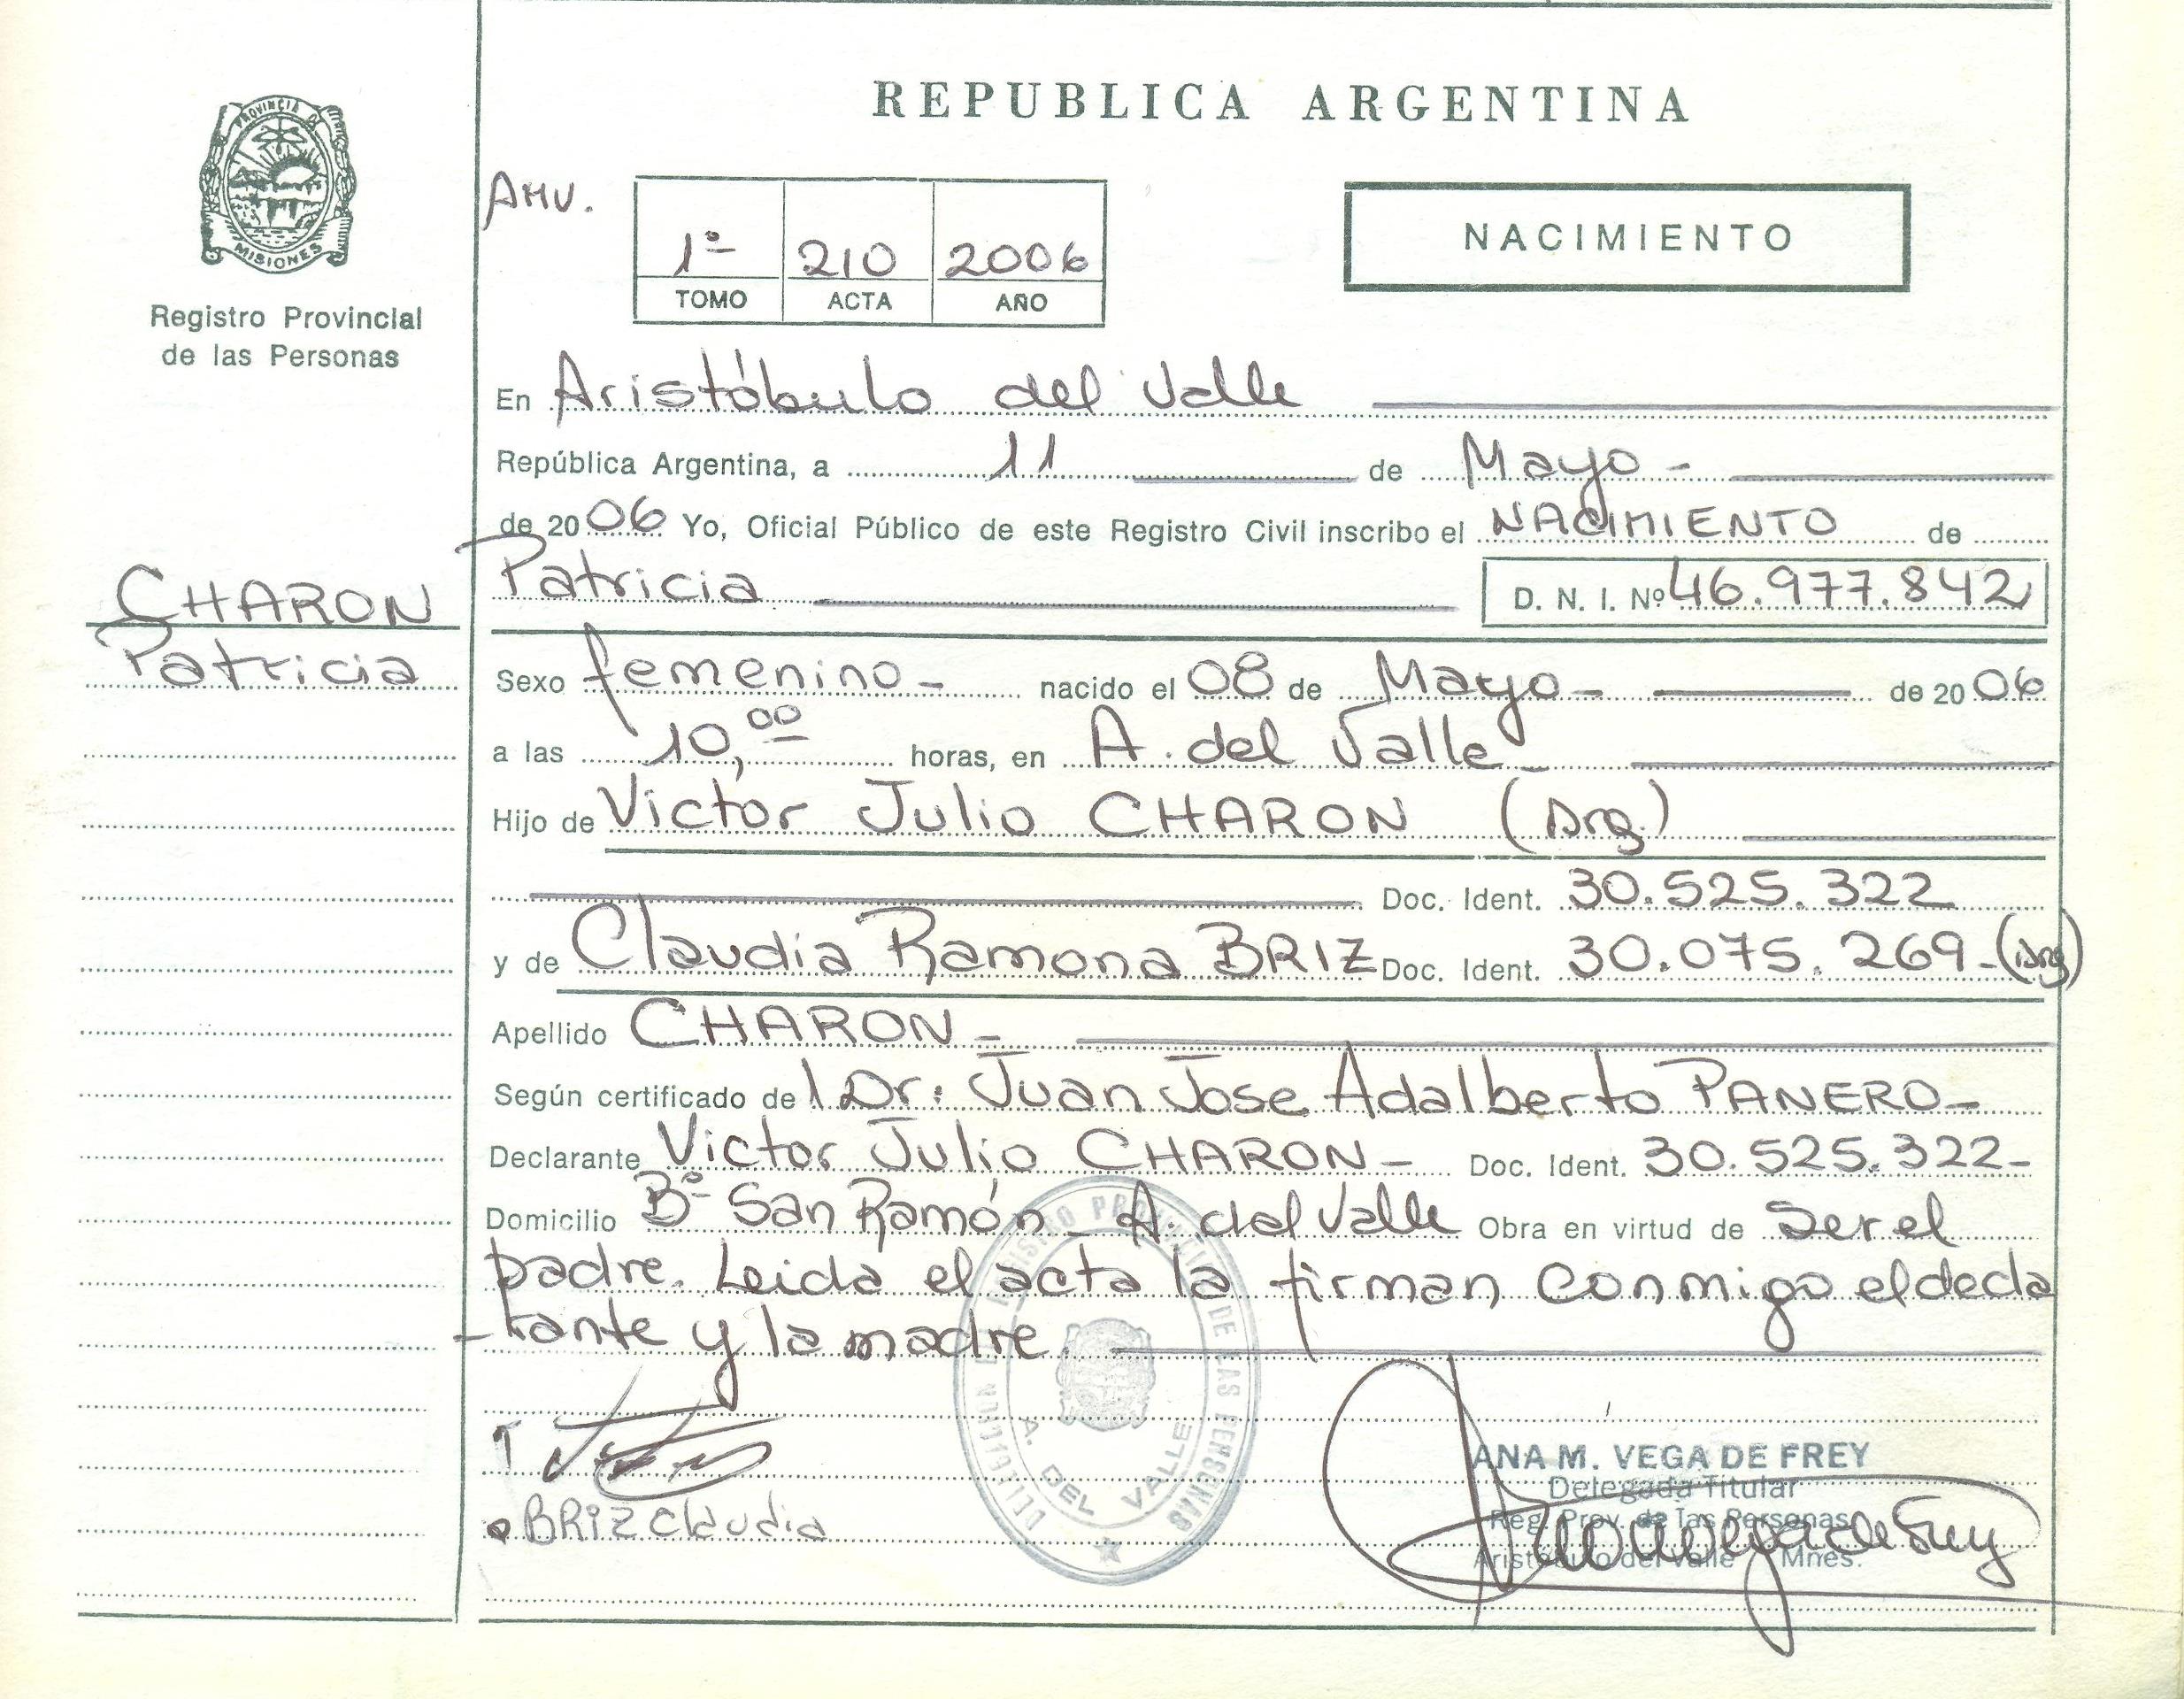 REPUBLICA ARGENTINA
PROVINCIA DE
MISIONES
Registro Provincial
de las Personas
AMV.
1º 210 2006
TOMO ACTA AÑO
NACIMIENTO
En Aristóbulo del Valle
República Argentina, a 11 de Mayo -
de 2006 Yo, Oficial Público de este Registro Civil inscribo el NACIMIENTO de
CHARON
Patricia
Patricia D. N. I. Nº 46.977.842
Sexo femenino - nacido el 08 de Mayo - de 2006
a las 10,00 horas, en A. del Valle -
Hijo de Victor Julio CHARON (Arg.)
Doc. Ident. 30.525.322
y de Claudia Ramona BRIZ Doc. Ident. 30.075.269 - (Arg)
Apellido CHARON -
Según certificado de l Dr: Juan Jose Adalberto PANERO -
Declarante Victor Julio CHARON - Doc. Ident. 30.525.322 -
Domicilio Bº San Ramón - A. del Valle Obra en virtud de Ser el
padre. Leida el acta la firman conmigo el decla
- rante y la madre.
DELEGACION REGISTRO PROVINCIAL DE LAS PERSONAS
A. DEL VALLE
BRIZ Claudia
ANA M. VEGA DE FREY
Delegada Titular
Reg. Prov. de las Personas
Aristóbulo del Valle Mnes.